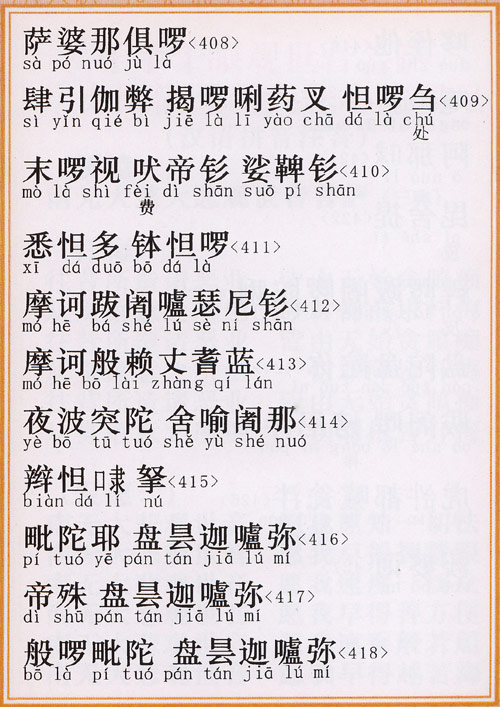 萨婆那俱啰<408>
sà pó nuó jù lá
肆引伽弊 揭啰唎药叉 怛啰刍<409>
sì yǐn qié bì jiē là lī yào chā dá là chú
处
末啰视 吠帝钐 娑鞞钐<410>
mò là shì fèi dì shān suō pí shān
费
悉怛多 钵怛啰<411>
xī dá duō bō dá là
摩诃跋阇嚧瑟尼钐<412>
mó hē bá shé lú sè ní shān
摩诃般赖丈耆蓝<413>
mó hē bō lài zhàng qí lán
夜波突陀 舍喻阇那<414>
yè bō tū tuó shě yù shé nuó
辫怛隶拏<415>
biàn dá lí nú
毗陀耶 盘昙迦嚧弥<416>
pí tuó yē pán tán jiā lú mí
帝殊 盘昙迦嚧弥<417>
dì shū pán tán jiā lú mí
般啰毗陀 盘昙迦嚧弥<418>
bō là pí tuó pán tán jiā lú mí